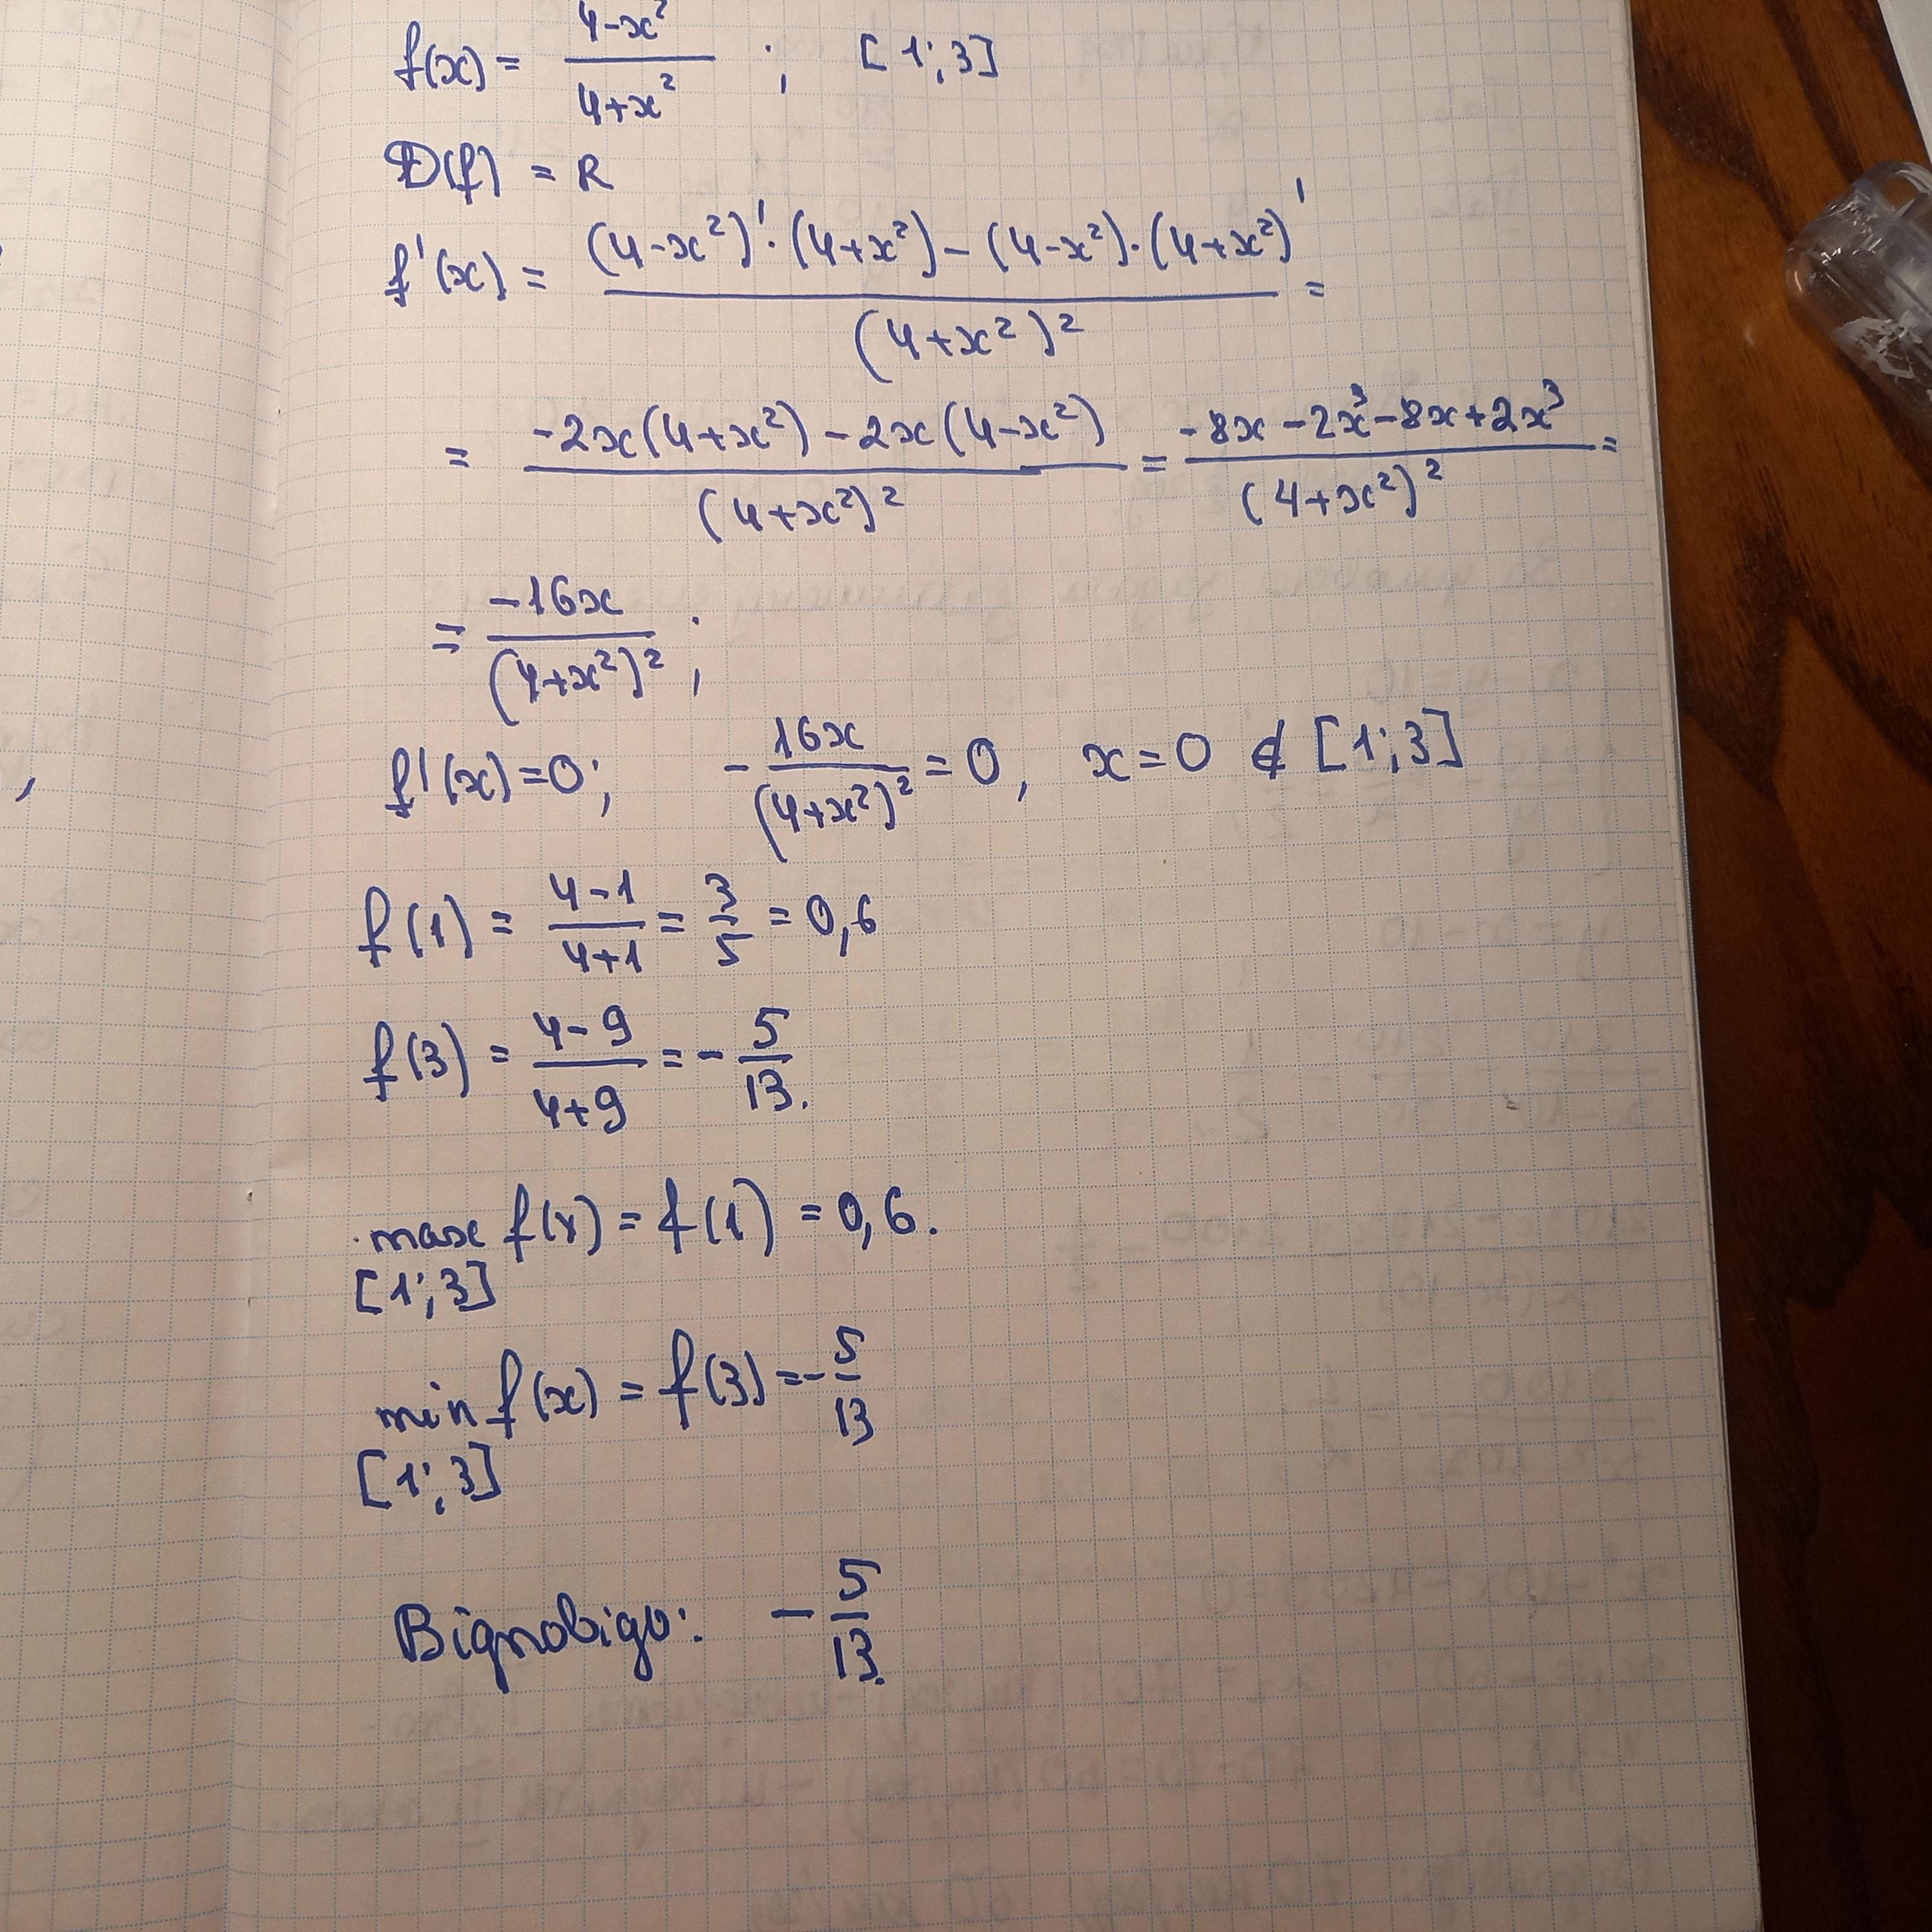 f(x) = (4-x²)/(4+x²) ; [1;3]
D(f) = R
f'(x) = ((4-x²)'·(4+x²)-(4-x²)·(4+x²)')/(4+x²)² =
= (-2x(4+x²)-2x(4-x²))/(4+x²)² = (-8x-2x³-8x+2x³)/(4+x²)² =
= (-16x)/(4+x²)² ;
f'(x)=0; -16x/(4+x²)² = 0, x=0 ∉ [1;3]
f(1) = (4-1)/(4+1) = 3/5 = 0,6
f(3) = (4-9)/(4+9) = -5/13.
max f(x) = f(1) = 0,6.
[1;3]
min f(x) = f(3) = -5/13
[1;3]
Відповідь: -5/13.